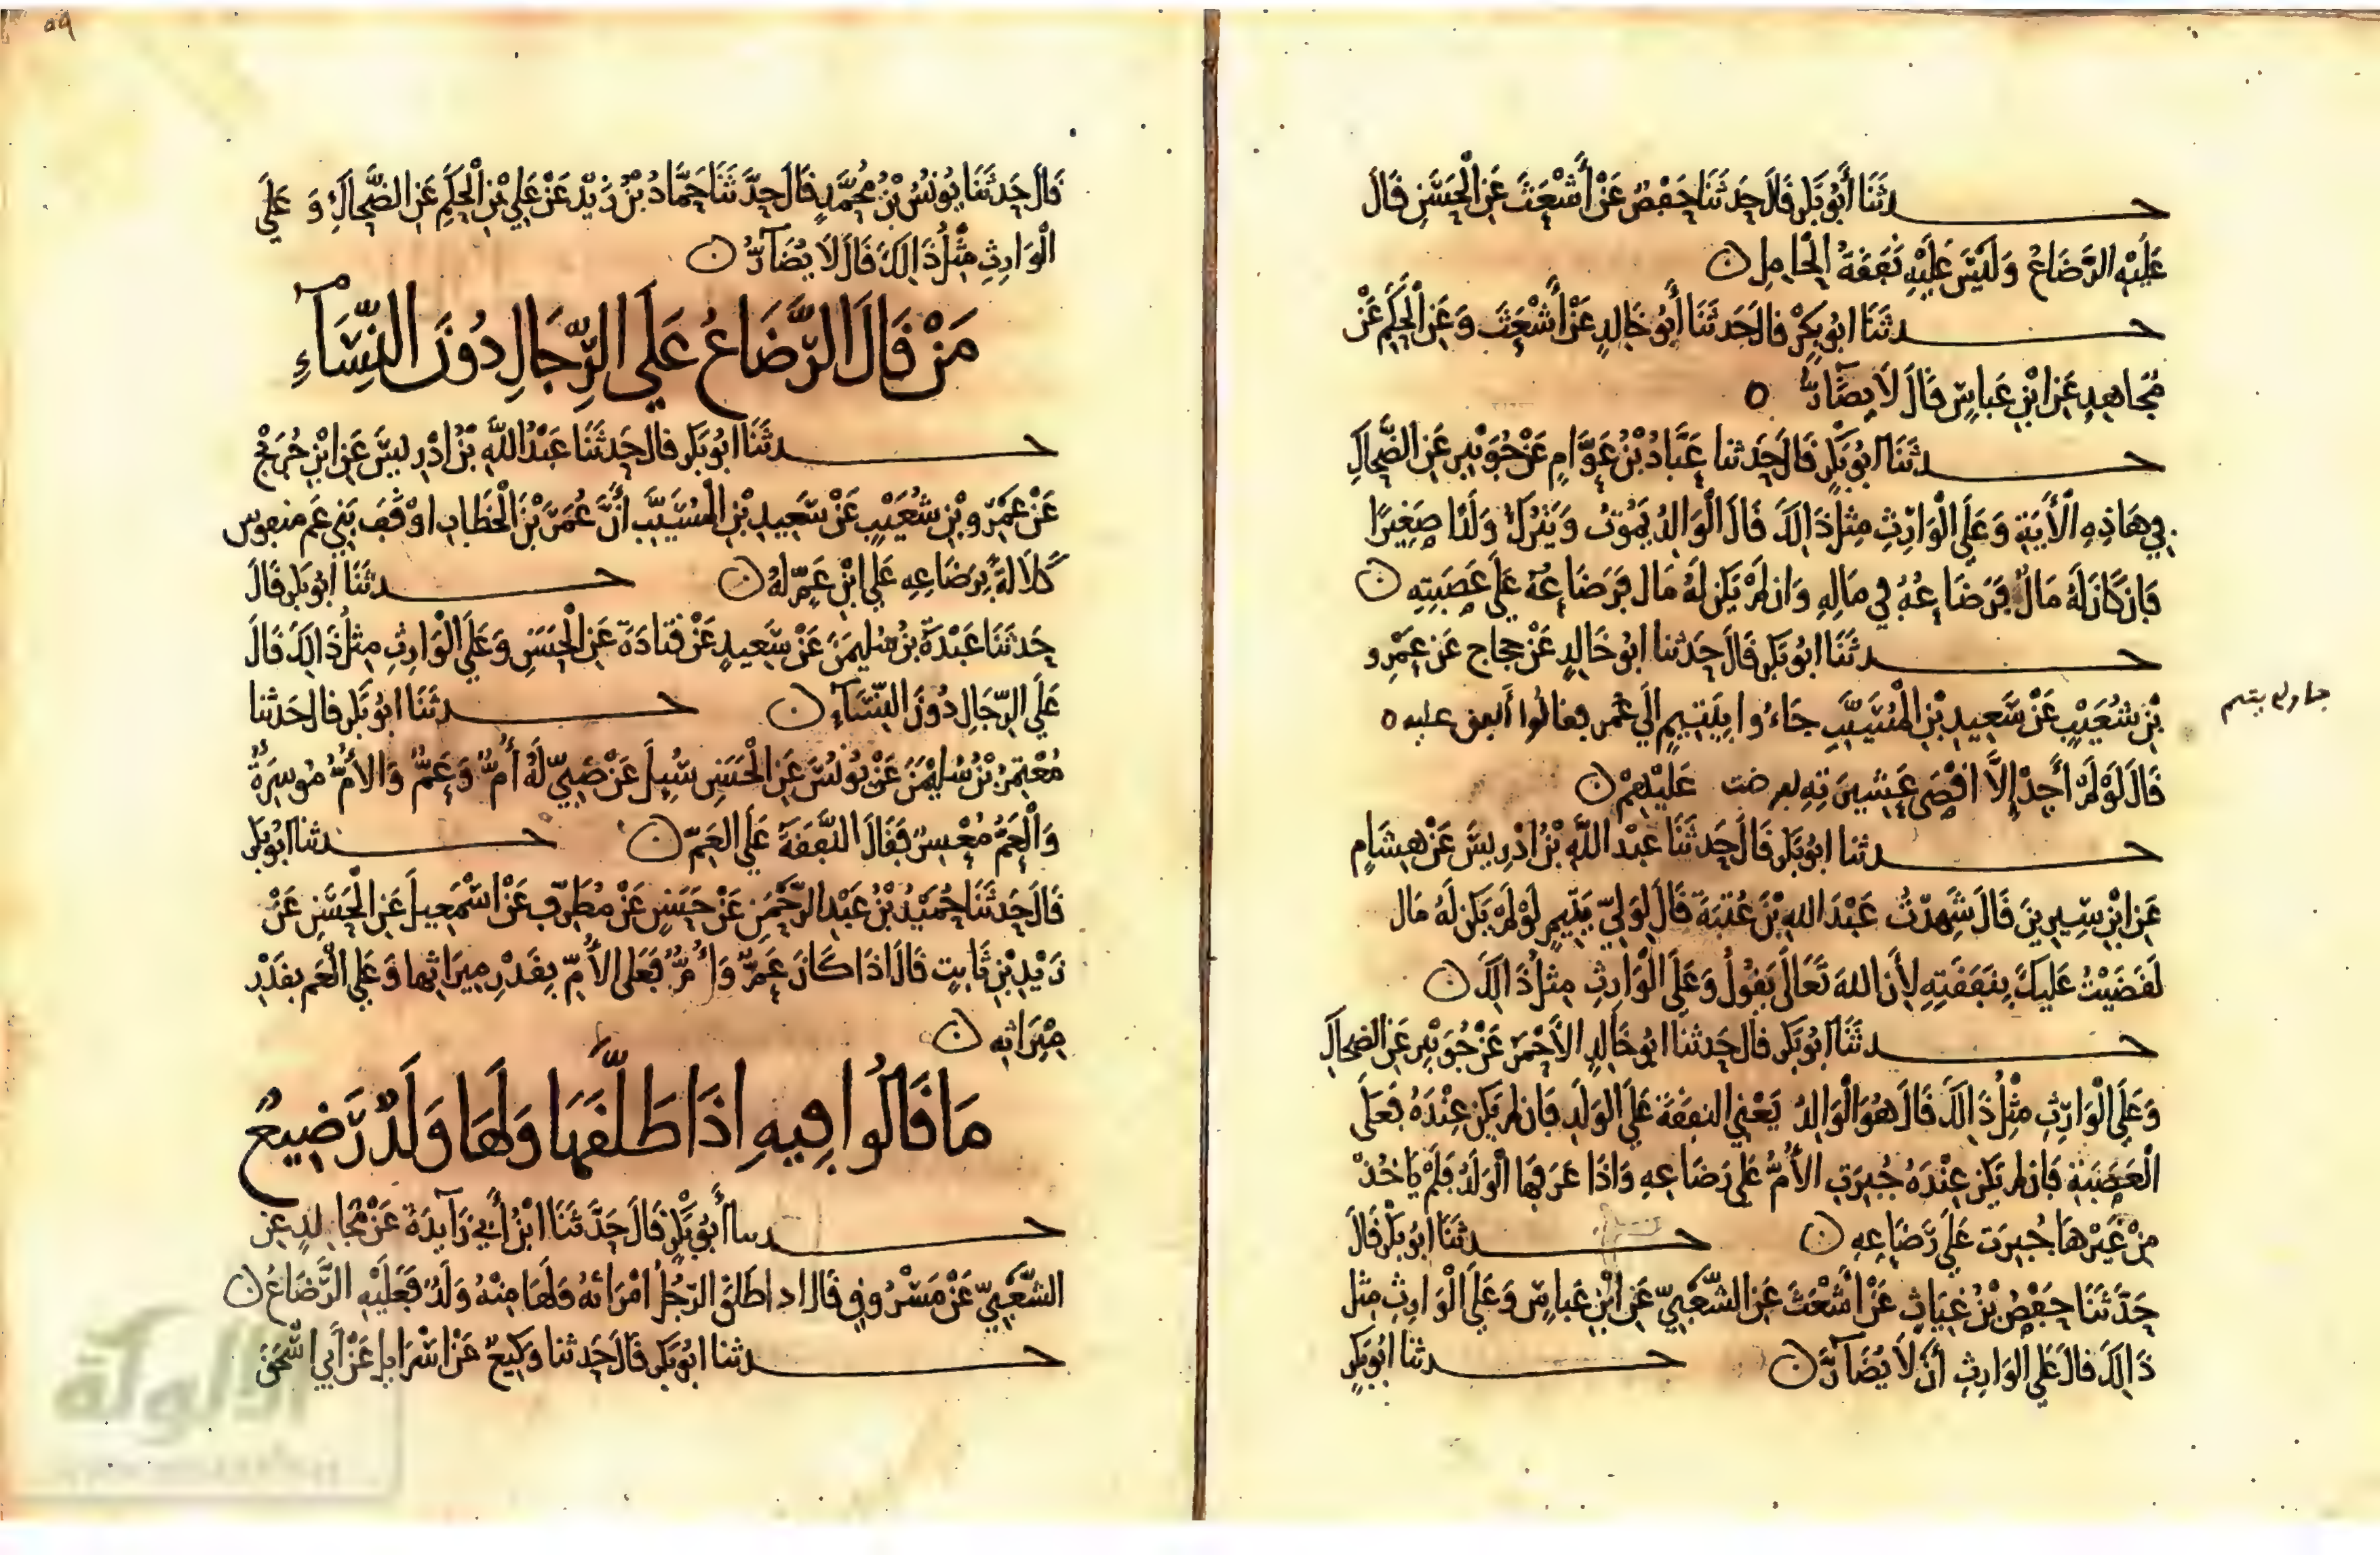 حدثنا أبو بكر قال حدثنا حفص عن أشعث عن الحسن قال
عليه الرضاع وليس عليه نفقة الحامل ن
حدثنا ابو بكر قال حدثنا أبو خالد عن أشعث وعن الحكم عن
مجاهد عن ابن عباس قال لا يضار ٥
حدثنا ابو بكر قال حدثنا عباد بن عوام عن جويبر عن الضحاك
في هاذه الأية وعلى الوارث مثل ذالك قال الوالد يموت ويترك ولدا صغيرا
فإن كان له مال فرضاعه في ماله وان لم يكن له مال فرضاعه على عصبته ن
حدثنا ابو بكر قال حدثنا ابو خالد عن حجاج عن عمرو
بن شعيب عن سعيد بن المسيب جاءوا بيتيم إلى عمر فقالوا أنفق عليه ٥
قال لو لم أجد إلا اقصى عشيرته لفرضت عليهم ن
حدثنا ابو بكر قال حدثنا عبد الله بن ادريس عن هشام
عن ابن سيرين قال شهدت عبد الله بن عتبة قال لولي يتيم لو لم يكن له مال
لقضيت عليك بنفقته لأن الله تعالى يقول وعلى الوارث مثل ذالك ن
حدثنا ابو بكر قال حدثنا ابو خالد الأحمر عن جويبر عن الضحاك
وعلى الوارث مثل ذالك قال هو الوالد يعني النفقة على الولد فان لم يكن عنده فعلى
العصبة فان لم يكن عنده جبرت الأم على رضاعه واذا عرفها الولد فلم ياخذ
من غيرها جبرت على رضاعه ن حدثنا ابو بكر قال
حدثنا حفص بن غياث عن أشعث عن الشعبي عن ابن عباس وعلى الوارث مثل
ذالك قال على الوارث أن لا يضار ن حدثنا ابو بكر
٥٩
قال حدثنا يونس بن محمد قال حدثنا حماد بن زيد عن علي بن الحكم عن الضحاك وعلى
الوارث مثل ذالك قال لا يضآر ن
من قال الرضاع على الرجال دون النسآء
حدثنا ابو بكر قال حدثنا عبد الله بن ادريس عن ابن جريج
عن عمرو بن شعيب عن سعيد بن المسيب أن عمر بن الخطاب اوقف بني عم منفوس
كلالة برضاعه على ابن عم له ن حدثنا ابو بكر قال
حدثنا عبدة بن سليمن عن سعيد عن قتادة عن الحسن وعلى الوارث مثل ذالك قال
على الرجال دون النسآء ن حدثنا ابو بكر قال حدثنا
معتمر بن سليمن عن يونس عن الحسن سيل عن صبي له أم وعم والأم موسرة
والعم معسر فقال النفقة على العم ن حدثنا ابو بكر
قال حدثنا حميد بن عبد الرحمن عن حسن عن مطرف عن اسمعيل عن الحسن عن
زيد بن ثابت قال اذا كان عم وأم فعلى الأم بقدر ميراثها وعلى العم بقدر
ميراثه ن
ما قالوا فيه اذا طلقها ولها ولد رضيع
حدثنا أبو بكر قال حدثنا ابن أبي زآيدة عن مجالد عن
الشعبي عن مسروق قال اذا طلق الرجل امرأته ولها منه ولد فعليه الرضاع ن
حدثنا ابو بكر قال حدثنا وكيع عن اسرايل عن أبي اسحق
الألوكة